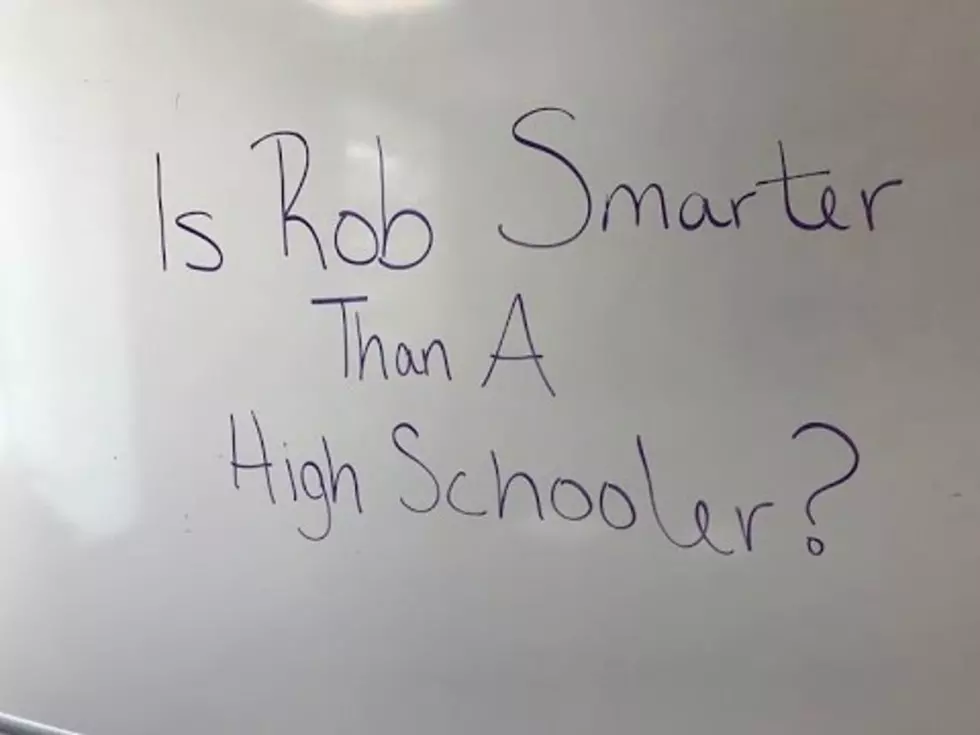 Is Rob Smarter
Than A
High Schooler?